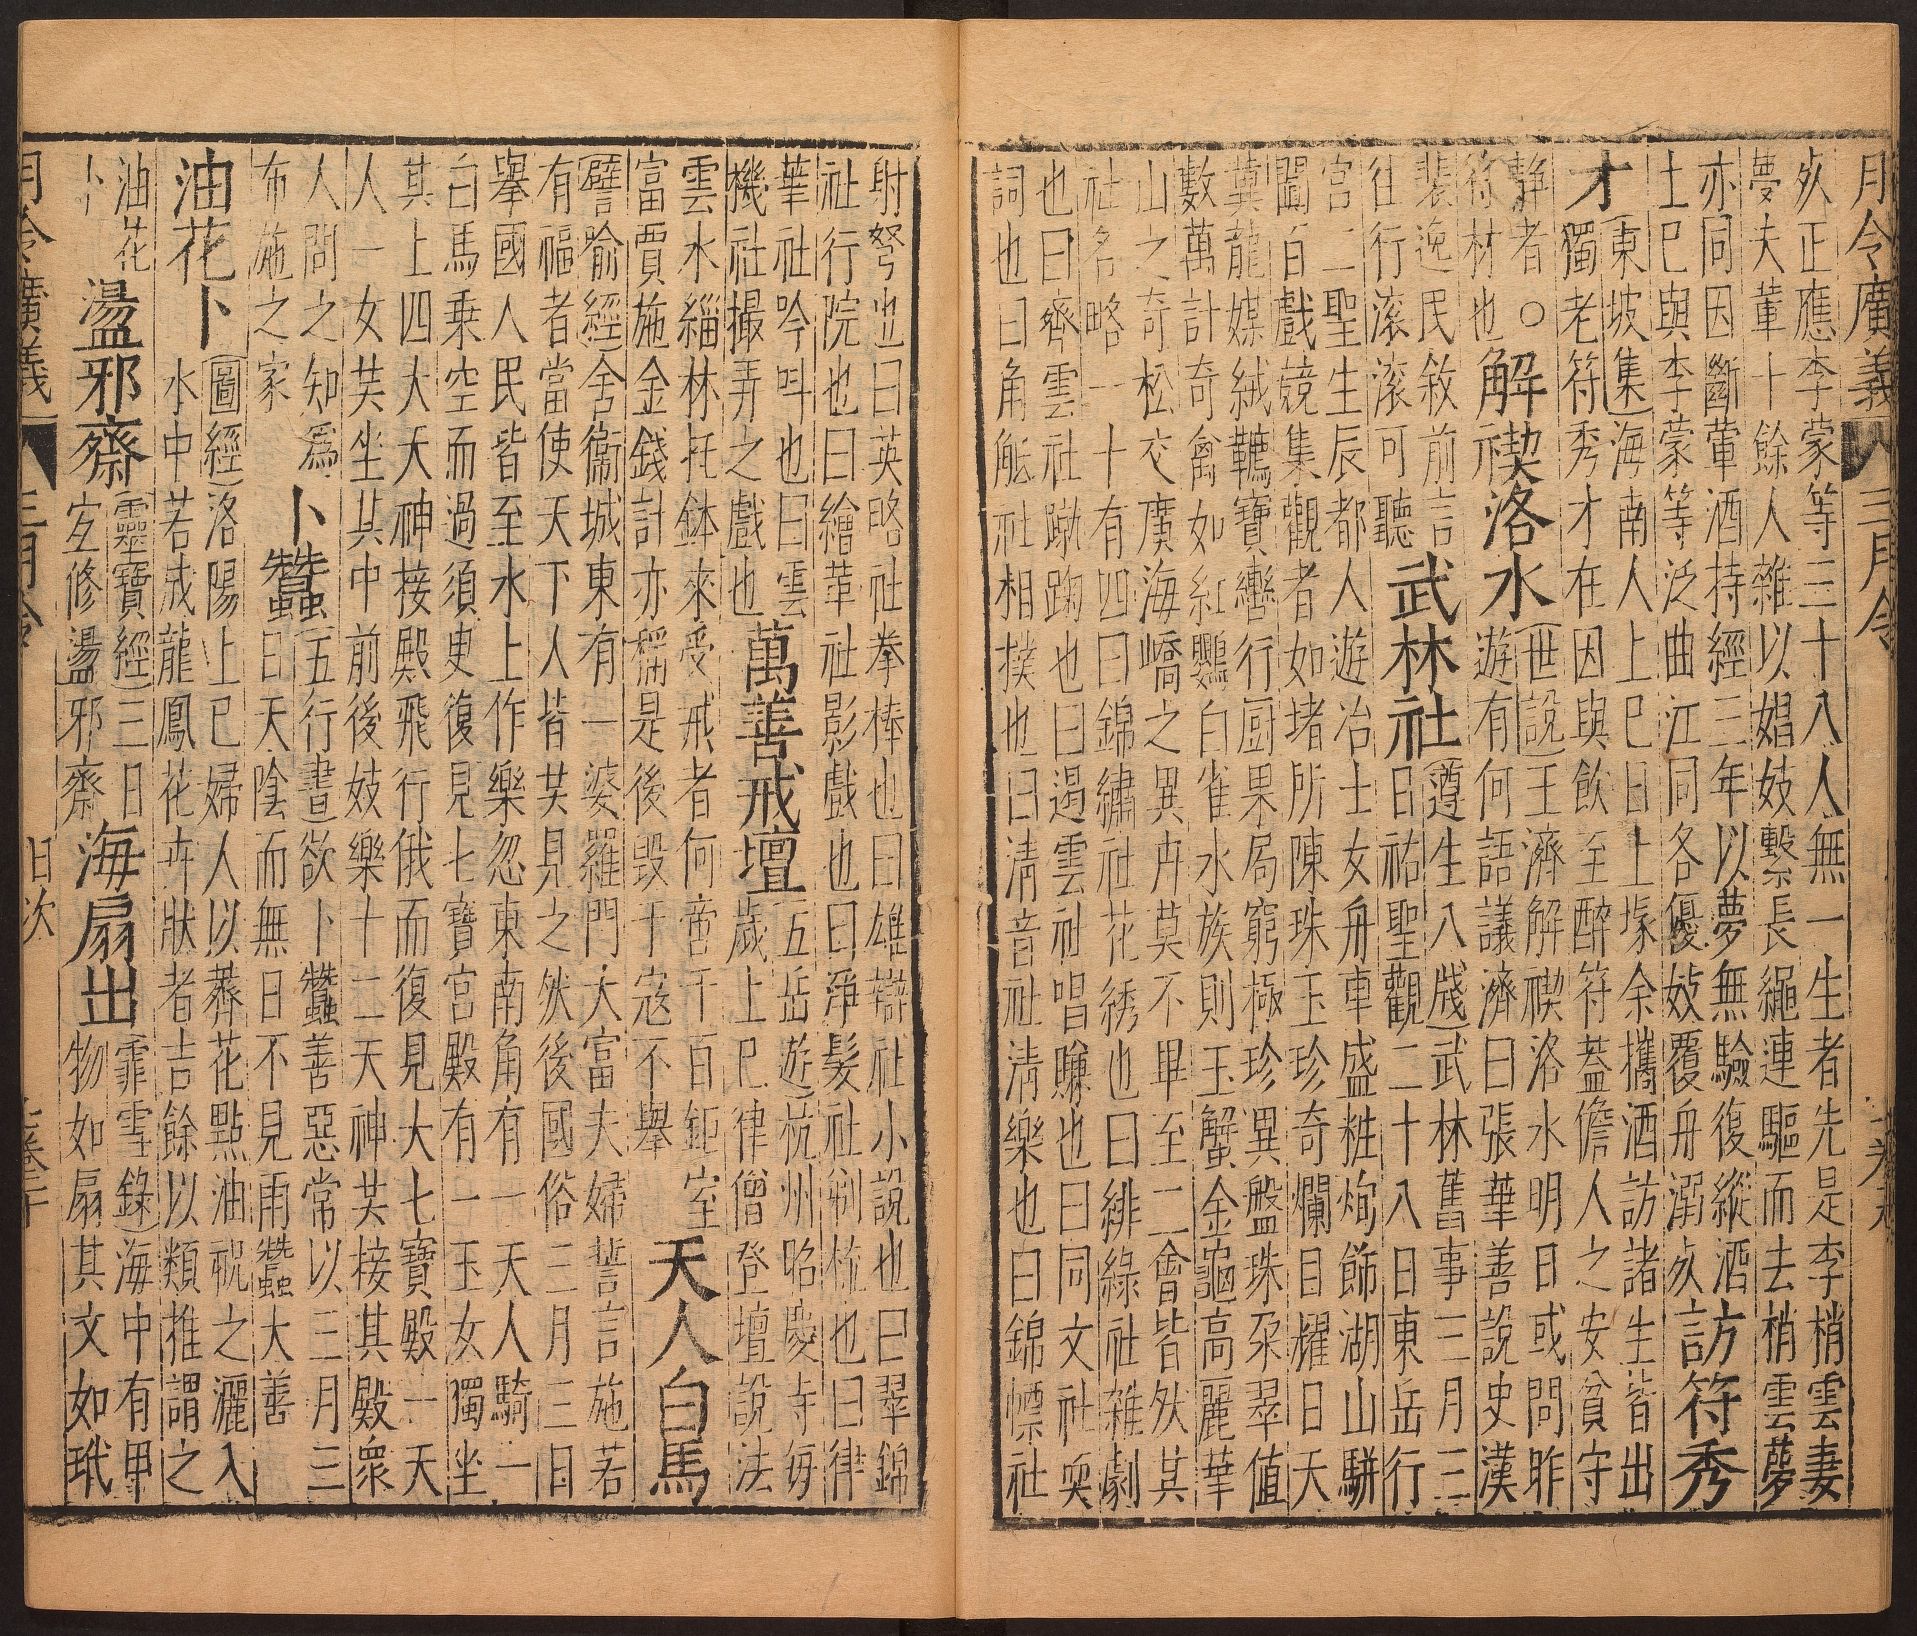 月令廣義 三月令
㳄正應李蒙等三十八人無一生者先是李梢雲妻
夢夫輩十餘人雜以娼妓繫長繩連驅而去梢雲夢
亦同因斷葷酒持經三年以夢無驗復縱酒 訪符秀
士巳與李蒙等泛曲江同各優妓覆舟溺㳄
才 東坡集海南人上巳日上塜余攜酒訪諸生皆出
獨老符秀才在因與飲至醉符蓋儋人之安貧守
靜者○ 解禊洛水 世說王濟解禊洛水明日或問昨
符林也 遊有何語議濟曰張華善說史漢
裴逸民敘前言 武林社 遵生八牋武林舊事三月三
往行滚滚可聽 日祐聖觀二十八日東岳行
宮二聖生生辰都人遊冶士女舟車盛粧炫飾湖山駢
闐百戲競集觀者如堵所陳珠玉珍奇爛目耀日天
冀龍媒絨韉寶轡行厨果局窮極珍異盤珠朶翠值
數萬計奇禽如紅鸚白雀水族則玉蟹金龜高麗華
山之奇松交廣海嶠之異卉莫不畢至二會皆然其
社名略一十有四曰錦繡社花綉也曰緋綠社雜劇
也曰齊雲社蹴踘也曰遏雲社唱賺也曰同文社耎
詞也曰角觝社相撲也曰清音社清樂也曰錦㯹社
射弩也曰英略社拳棒也曰雄辯社小說也曰翠錦
社行院也曰繪革社影戲也曰淨髮社剃梳也曰律
華社吟呌也曰雲機社撮弄之戲也 萬善戒壇 五岳遊杭州昭慶寺每歲上巳律僧登壇說法
雲水緇林托鉢來受戒者何啻千百鉅室
富賈施金錢計亦稱是後毀于寇不舉 天人白馬
譬喻經舍衞城東有一婆羅門大富夫婦誓言施若
有福者當使天下人皆共見之然後國俗三月三日
舉國人民皆至水上作樂忽東南角有一天人騎一
白馬乗空而過須臾復見七寶宮殿有一玉女獨坐
其上四大天神接殿飛行俄而復見大七寶殿一天
人一女共坐其中前後妓樂十二天神共接其殿衆
人問之知為 卜蠶 五行書欲卜蠶善惡常以三月三
布施之家 日天陰而無日不見雨蠶大善
油花卜 圖經洛陽上巳婦人以薺花點油祝之灑入
水中若成龍鳳花卉狀者吉餘以類推謂之
油花卜 盪邪齋 靈寶經三日宐修盪邪齋 海扇出 霏雪錄海中有甲物如扇其文如玳
月令廣義 三月令 日次